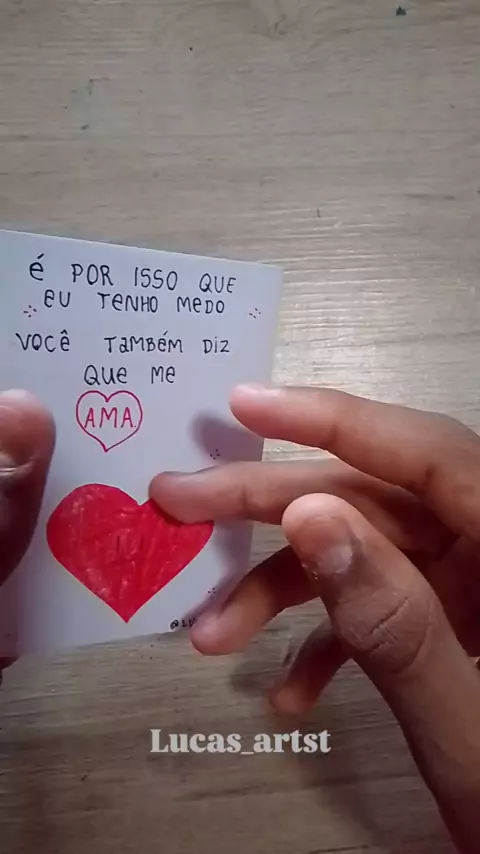 é POR ISSO QUE
eU TENHO MeDO
VOCÊ TamBém DIZ
QUe me
AMA
Lucas_artst